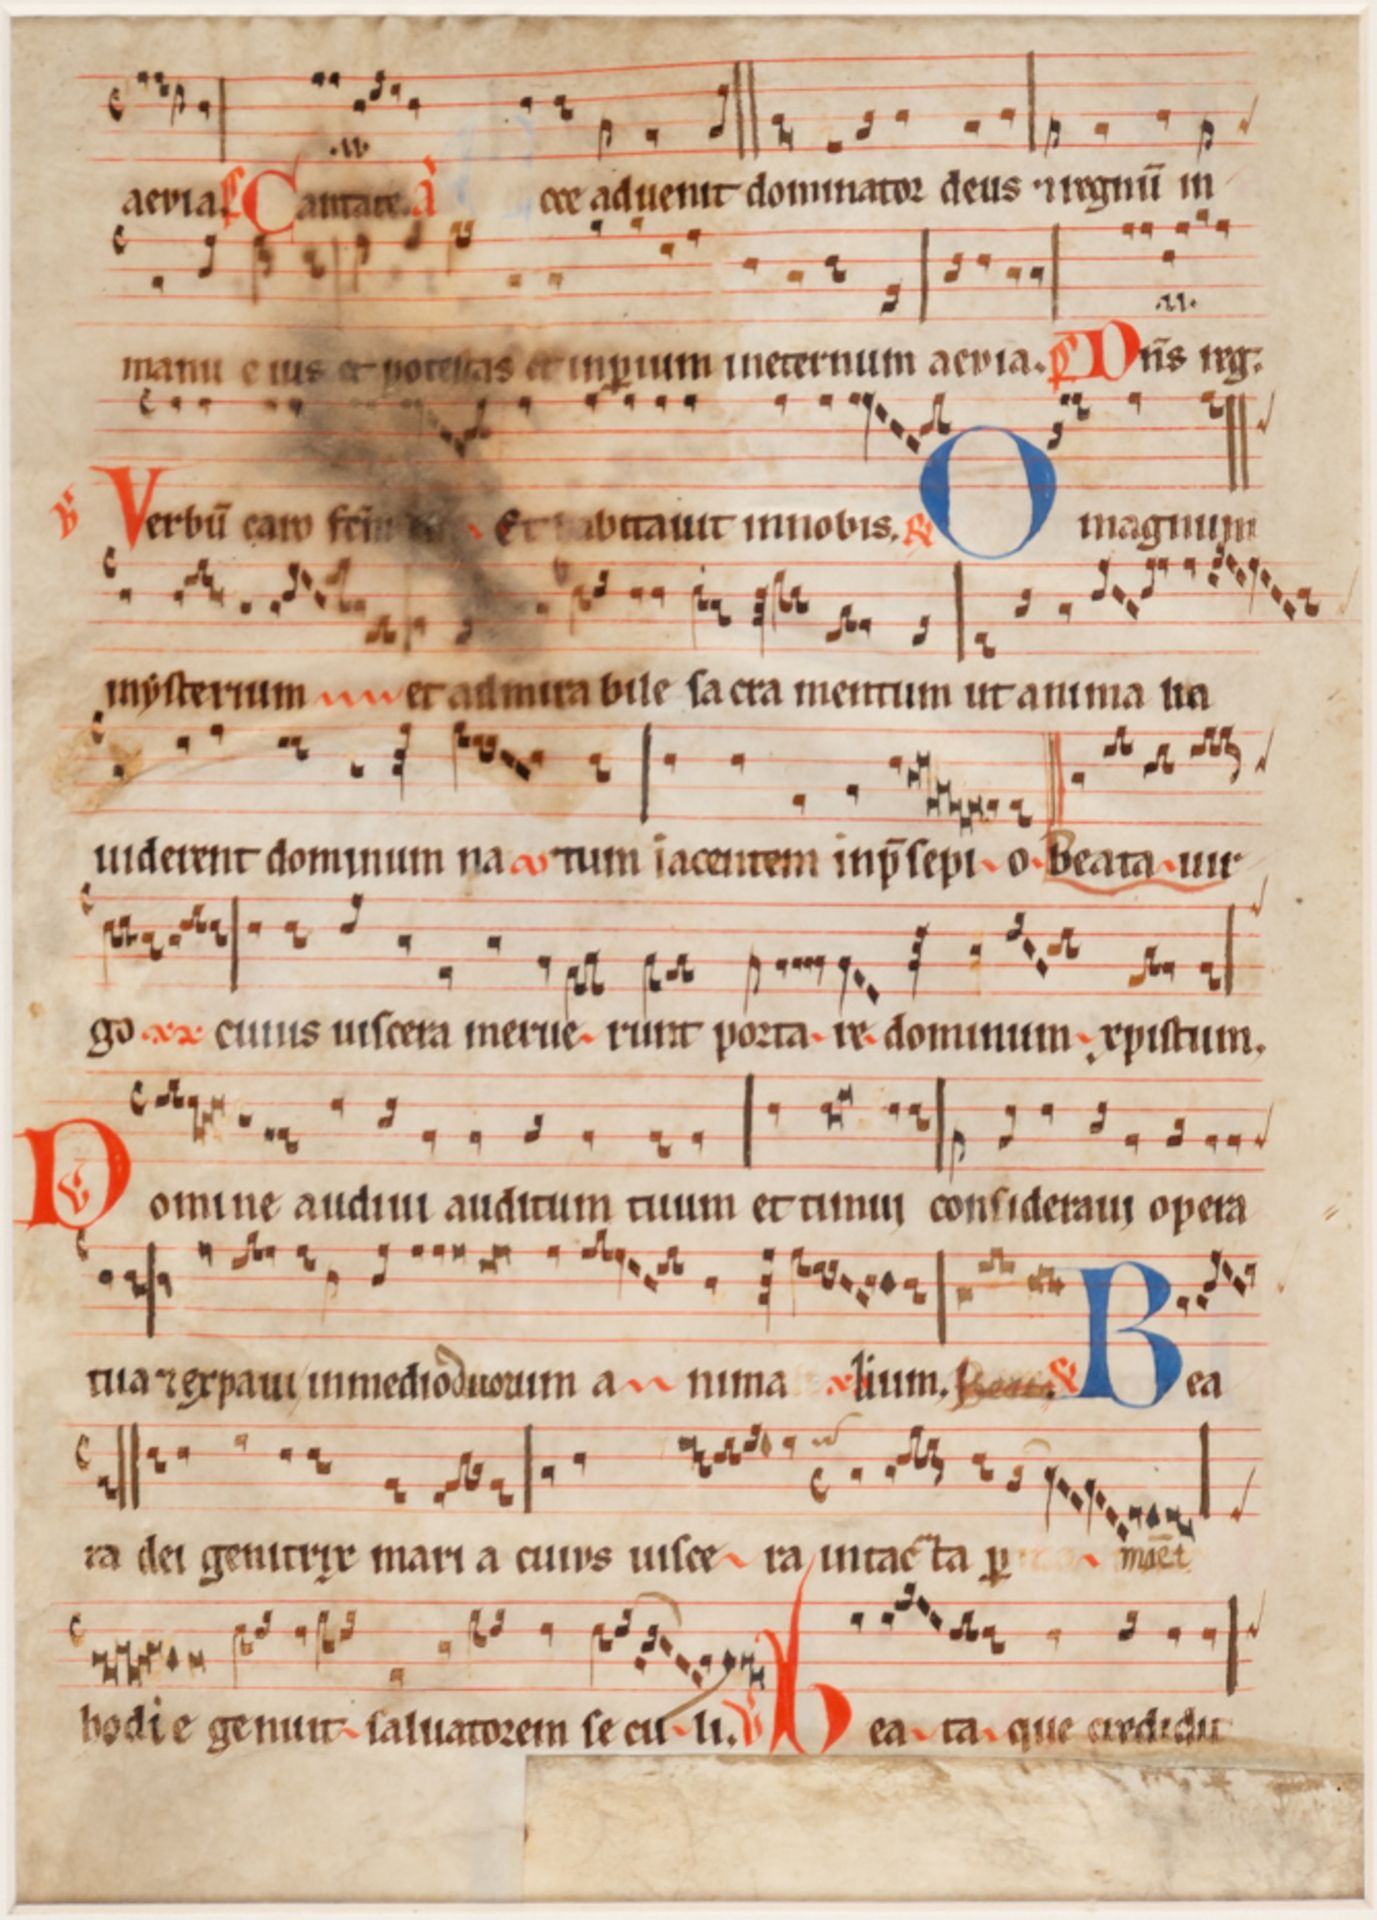 aevia. ps Cantate. a cce aduenit dominator deus ⁊ regnū in
manu eius et potestas et inp̄ium ineternum aevia. ps Dn̄s reg.
℣ Verbū caro Et habitauit innobis. ℟ O magnum
mysterium et admirabile sacra mentum ut anima lia
uiderent dominum na tum iacentem inp̄sepi o Beata uir
go cuius uiscera merue runt porta re dominum xpistum.
℣ Domine audiui auditum tuum et timui consideraui opera
tua ⁊ expaui inmedio duorum a nima lium. Beata. ℟ Bea
ta dei genitrix mari a cuius uisce ra intacta ꝑ
hodie genuit saluatorem se cu li. ℣ bea ta que credidit